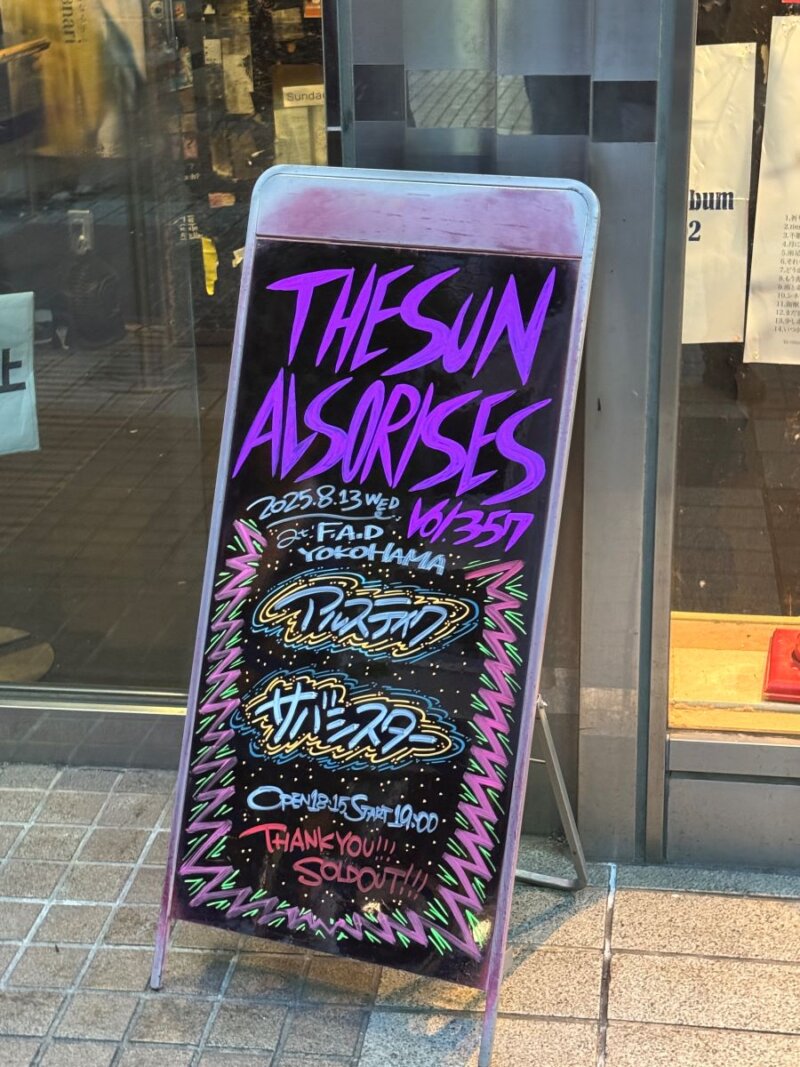 THE SUN
ALSO RISES
2025.8.13 WED
Vol 357
at F.A.D
YOKOHAMA
アルステイク
サバシスター
OPEN 18:15 START 19:00
THANK YOU!!!
SOLDOUT!!!
Sunda
止
bum
2